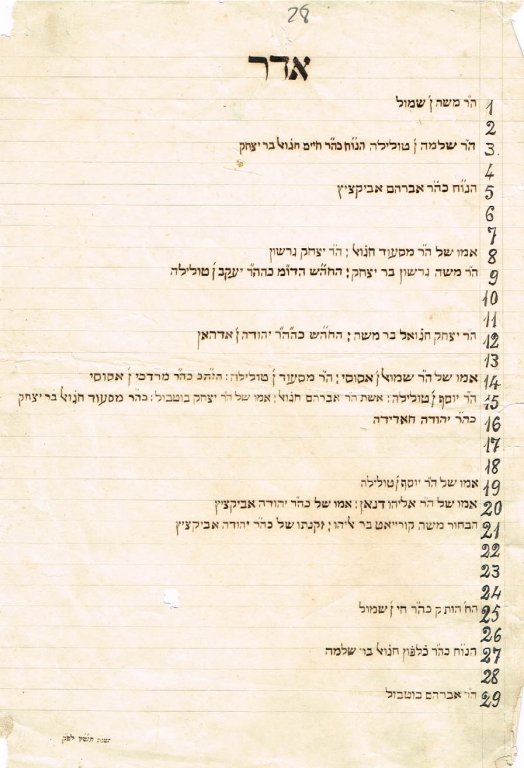 28
אדר
1 הר משה ן׳ שמול
2
3 הר שלמה ן׳ טולילה הנו״ח כה״ר חיים חנואל בר יצחק
4
5 הנו״ח כה״ר אברהם אביקציץ
6
7
8 אמו של ה״ר מסעוד חנוא׳; ה״ר יצחק גרשון
9 ה״ר משה גרשון בר יצחק; החה״ש הדו״מ כהה״ר יעקב ן׳ טולילה
10
11
12 ה״ר יצחק חנואל בר משה; החה״ש כהה״ר יהודה ן׳ אדהאן
13
14 אמו של ה״ר שמואל ן׳ אסוסי; ה״ר מסעוד ן׳ טולילה: כה״ר מרדכי ן׳ אסוסי
15 ה״ר יוסף ן׳ טולילה: אשת ה״ר אברהם חנוא׳; אמו של ה״ר יצחק בוטבול: כה״ר מסעוד חנוא׳ בר יצחק
16 כה״ר יהודה חאדידה
17
18
19 אמו של ה״ר יוסף ן׳ טולילה
20 אמו של ה״ר אליהו דנאן: אמו של כה״ר יהודה אביקציץ
21 הבחור משה קורייאט בר ליהו; זקנתו של כה״ר יהודה אביקציץ
22
23
24
25 כה״ר חי ן׳ שמול
26
27 הנו״ח כה״ר כלפון חנוא׳ בר שלמה
28
29 ה״ר אברהם בוטבול
שנת לפ״ק